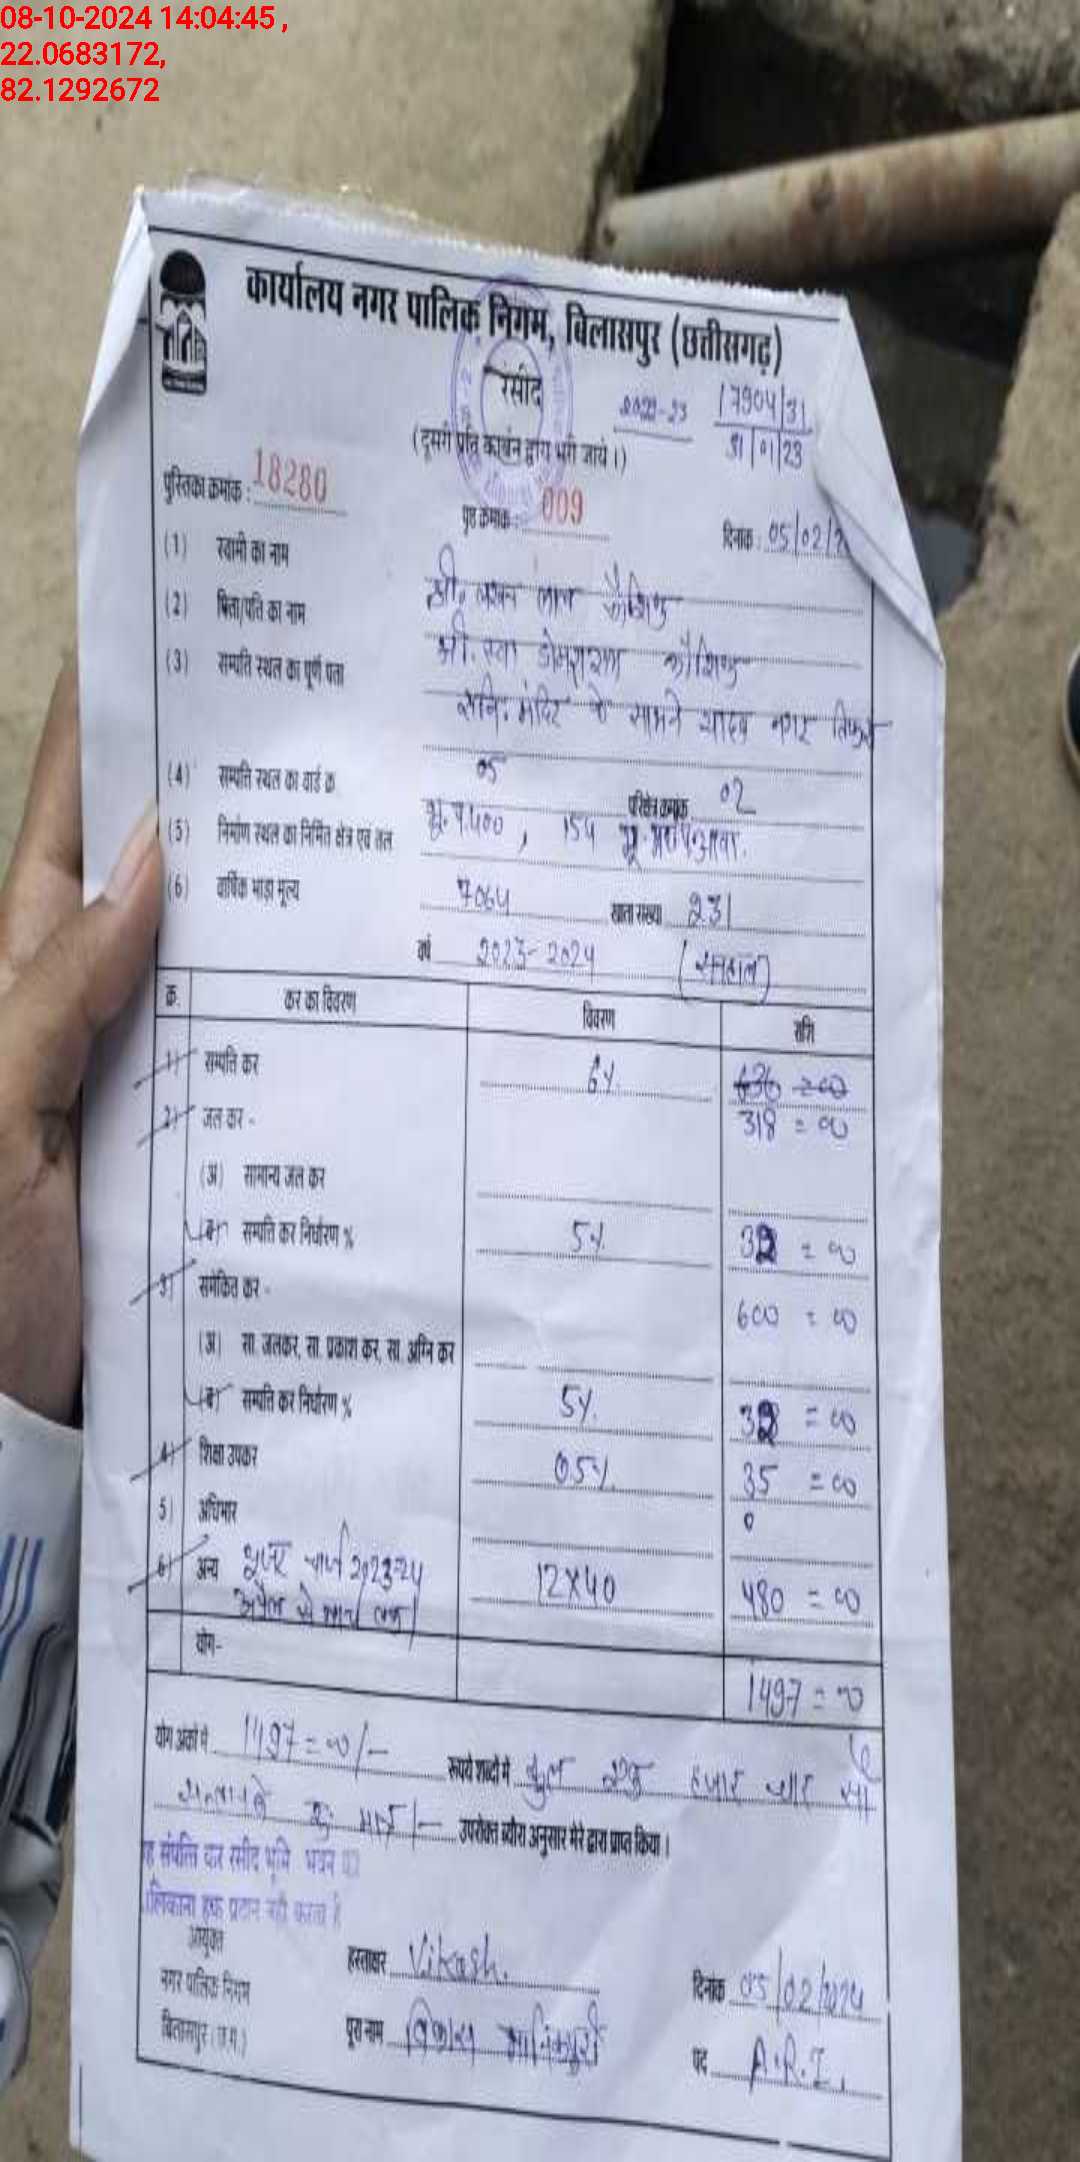 08-10-2024 14:04:45 ,
22.0683172,
82.1292672
कार्यालय नगर पालिक निगम, बिलासपुर (छत्तीसगढ़)
रसीद
2022-23 17904/31
31/01/23
(दूसरी प्रति कार्बन द्वारा भरी जाये।)
पुस्तिका क्रमांक : 18280
पृष्ठ क्रमांक : 009
दिनांक : 05/02/2
(1) स्वामी का नाम श्री. लखन लाल कौशिक
(2) पिता/पति का नाम श्री. स्व। डोमनराम कौशिक
(3) सम्पत्ति स्थल का पूर्ण पता शनि. मंदिर के सामने यादव नगर तिफरा
(4) सम्पत्ति स्थल का वार्ड क्र 05 परिक्षेत्र क्रमांक 02
(5) निर्माण स्थल का निर्मित क्षेत्र एवं तल भू. 9400, 154
(6) वार्षिक भाड़ा मूल्य 7064 खाता संख्या 231
वर्ष 2023-2024 (
क्र. कर का विवरण विवरण राशि
1) सम्पत्ति कर 6% 636 = 00
318 = 00
2) जल कर -
(अ) सामान्य जल कर
(ब) सम्पत्ति कर निर्धारण % 5% 32 = 00
3) समेकित कर - 600 = 00
(अ) सा. जलकर, सा. प्रकाश कर, सा. अग्नि कर
(ब) सम्पत्ति कर निर्धारण % 5% 32 = 00
4) शिक्षा उपकर 05% 35 = 00
5) अधिभार 0
6) अन्य यूजर चार्ज 2023-24 12X40 480 = 00
अप्रैल से मार्च तक
योग- 1497 = 00
योग अंकों में 1497=00/- रूपये शब्दों में कुल एक हजार चार सौ
सन्तानवे रू मात्र/- उपरोक्त ब्यौरा अनुसार मेरे द्वारा प्राप्त किया।
ह संपत्ति कर रसीद भूमि भवन का
लिकाना हक प्रदान नहीं करता है
आयुक्त
नगर पालिक निगम
बिलासपुर (छ.ग.)
हस्ताक्षर Vikash.
दिनांक 05/02/2024
पूरा नाम विकास मानिकपुरी
पद A.R.I.